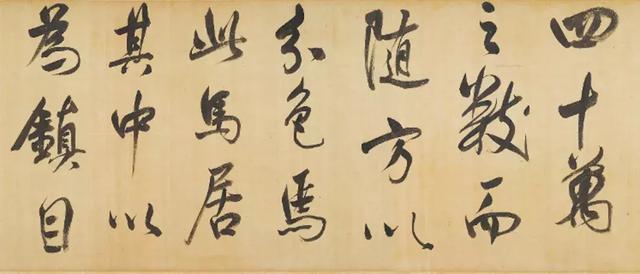 四十萬
之數而
随方以
分色焉
此馬居
其中以
為鎮目